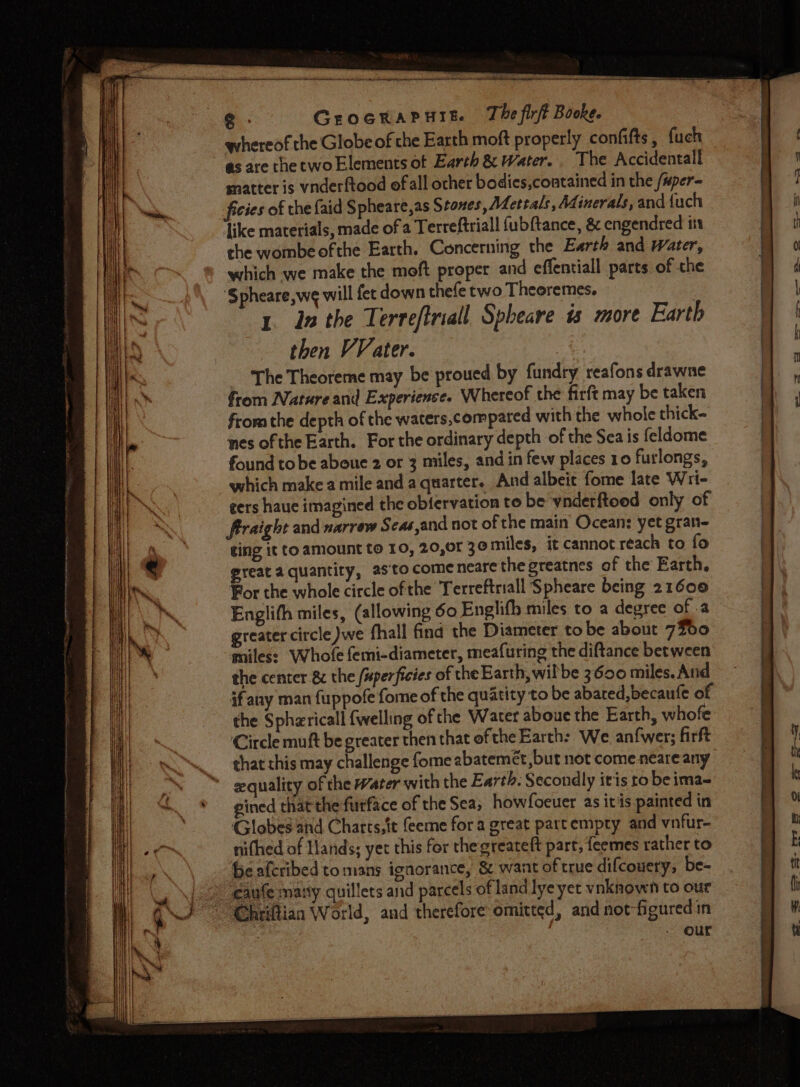 8. GEOGRAPHIE. The firſt Booke.
whereof the Globe of the Earth moſt properly conſiſts, ſuch
as are the two Elements of Earth & Water. The Accidentall
matter is vnderſtood of all other bodies, contained in the ſuper-
ficies of the ſaid Spheare, as Stones, Mettals, Minerals, and ſuch
like materials, made of a Terreſtriall ſubſtance, & engendred in
the wombe of the Earth. Concerning the Earth and Water,
which we make the moſt proper and eſſentiall parts of the
Spheare, we will ſet down theſe two Theoremes.
1. In the Terreſtriall Spheare is more Earth
then VVater.
The Theoreme may be proued by ſundry reaſons drawne
from Nature and Experience. Whereof the firſt may be taken
from the depth of the waters, compared with the whole thick-
nes of the Earth. For the ordinary depth of the Sea is ſeldome
found to be aboue 2 or 3 miles, and in few places 10 furlongs,
which make a mile and a quarter. And albeit ſome late Wri-
ters haue imagined the obſervation to be vnderſtood only of
ſtraight and narrow Seas, and not of the main Ocean: yet gran-
ting it to amount to 10, 20, or 30 miles, it cannot reach to ſo
great a quantity, as to come neare the greatnes of the Earth.
For the whole circle of the Terreſtriall Spheare being 21600
Engliſh miles, (allowing 60 Engliſh miles to a degree of a
greater circle) we ſhall find the Diameter to be about 7200
miles: Whoſe ſemi-diameter, meaſuring the diſtance between
the center & the ſuperficies of the Earth, wil be 3600 miles. And
if any man ſuppoſe ſome of the quãtity to be abated, becauſe of
the Sphæricall ſwelling of the Water aboue the Earth, whoſe
Circle muſt be greater then that of the Earth: We anſwer; firſt
that this may challenge ſome abatemẽt, but not come neare any
æquality of the Water with the Earth. Secondly it is to be ima-
gined that the ſurface of the Sea, howſoeuer as it is painted in
Globes and Charts, it ſeeme for a great part empty and vnfur-
niſhed of Ilands; yet this for the greateſt part, ſeemes rather to
be aſcribed to mans ignorance, & want of true diſcouery, be-
cauſe many quillets and parcels of land lye yet vnknown to our
Chriſtian World, and therefore omitted, and not figured in
our